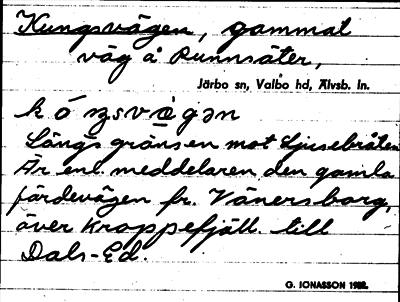 Kungsvägen, gammal
väg å Runnsäter,
Järbo sn, Valbo hd, Älvsb. ln.
kóŋsvὲgən
Längs gränsen mot Ljusebråten
Är enl. meddelaren den gamla
färdevägen fr. Vänersborg,
över Kroppefjäll till
Dals-Ed.
G. JONASSON 1922.